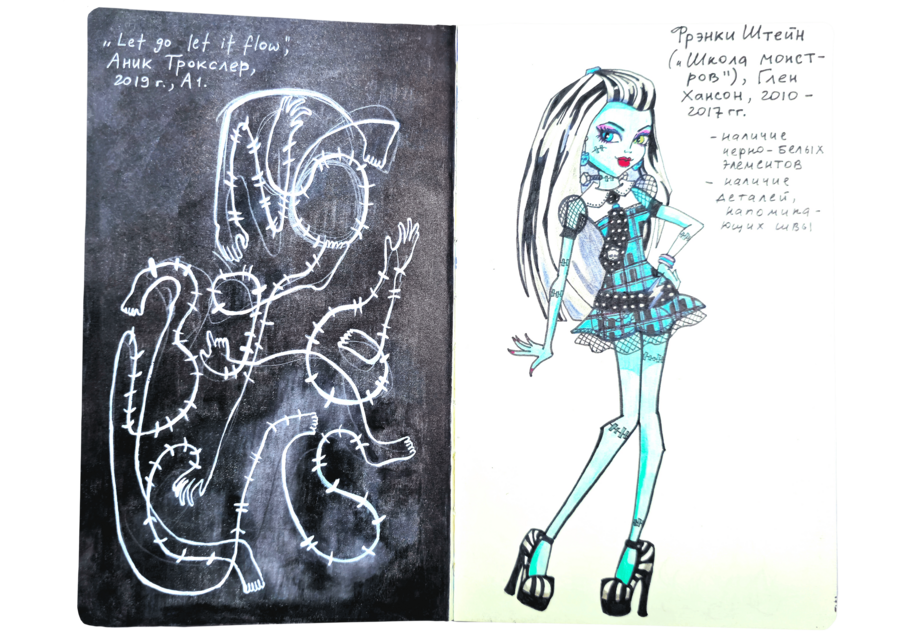 „Let go let it flow",
Аник Трокслер,
2019 г., А1.
Фрэнки Штейн
(„Школа монст-
ров"), Глен
Хансон, 2010 -
2017 гг.
- наличие
черно-белых
элементов
- наличие
деталей,
напомина-
ющих швы